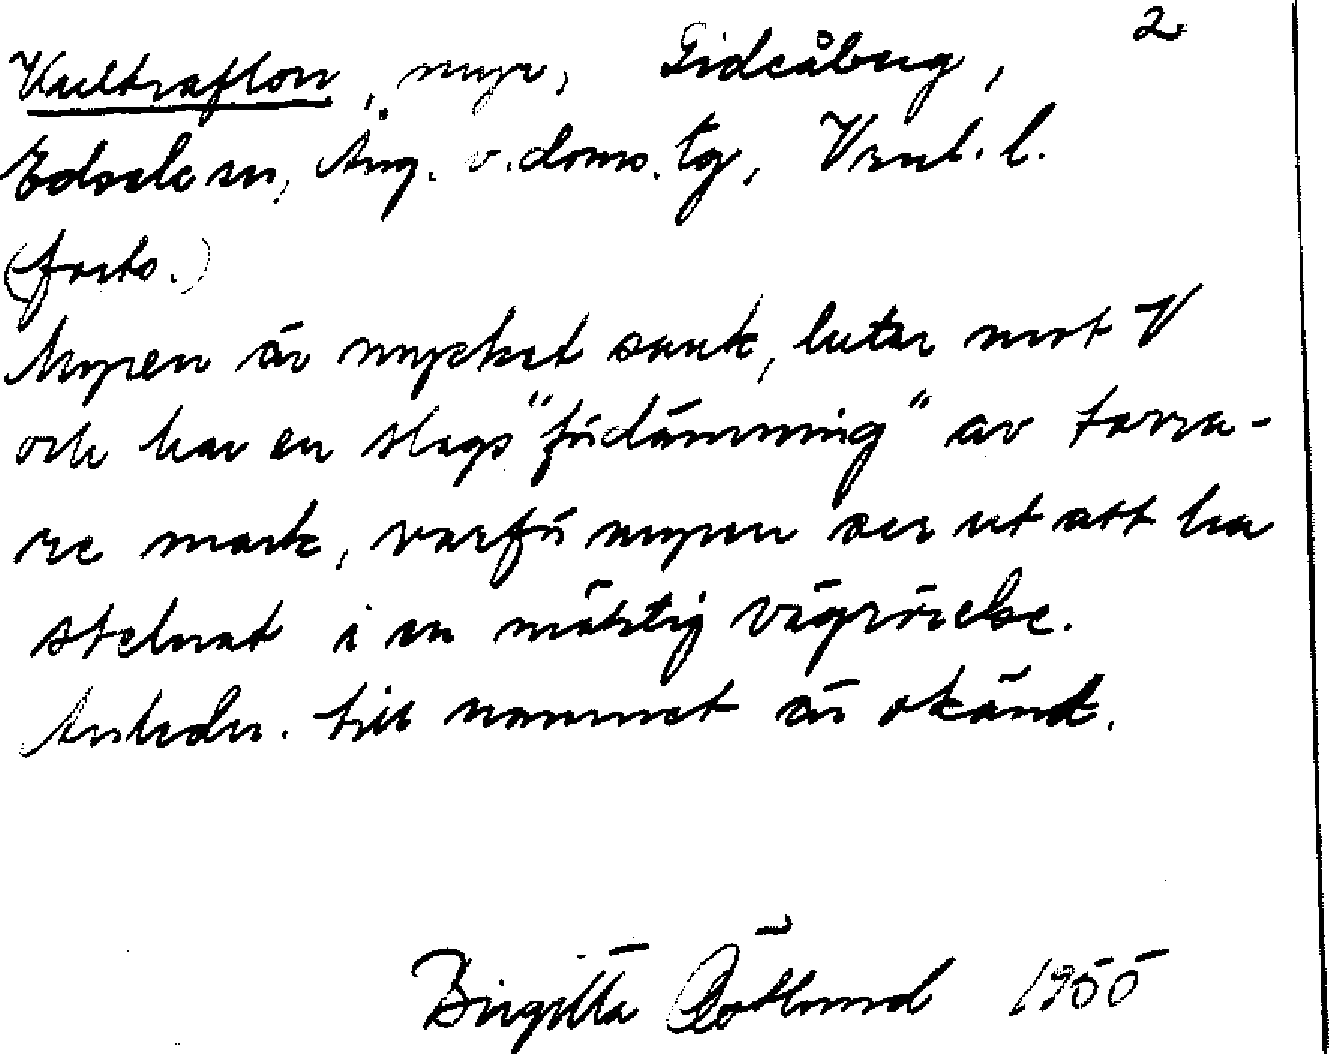 2
Kveltraflon, myr, Gideåberg,
Edsele sn, Ång. v. doms. tg, Vnl. l.
(forts.)
Myren är mycket sank, lutar mot V
och har en slags "fördämning" av torra-
re mark, varför myren ser ut att ha
stelnat i en mäktig vågrörelse.
Anledn. till namnet är okänd.
Birgitta Östlund 1955